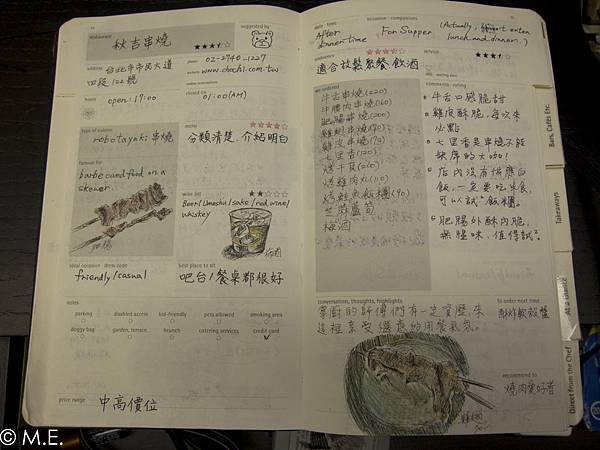 restaurant
秋吉串燒
suggested by
address
台北市市民大道
四段122號
phone
02-2740-1227
website
www.chochi.com.tw
hours
open: 17:00
closed on
01:00(AM)
type of cuisine
robatayaki 串燒
menu
分類清楚、介紹明白
famous for
barbecand food on a
skewer.
wine list
Beer/Umeshu/sake/red wine/
whiskey
梅酒
ideal occasion · dress code
friendly/casual
best place to sit
吧台/餐桌都很好
notes
parking
disabled access
kid-friendly
pets allowed
smoking area
doggy bag
garden, terrace..
brunch
catering services
credit card
price range
中高價位
date · time
After
dinner time
occasion · companions
For Supper
(Actually,
eaten
lunch and dinner.)
ambience
適合放鬆聚餐飲酒
service
we ordered
牛舌串燒(220)
牛腰肉串燒(160)
肥腸串燒(200)
雞皮串燒(70)
七里香(120)
芝麻蘆筍
梅酒
comments · rating
牛舌口感脆甜
雞皮酥脆,每次來
必點
七里香是串燒不能
缺席的大咖!
店內沒有供應白
飯,一定要吃米食
可以試
肥腸外酥內脆,
無腥味,值得試
conversation, thoughts, highlights
掌廚的師傅們有一定資歷,來
這裡享受
用餐氣氛。
to order next time
recommended to
燒肉愛好者
Bars, Cafés Etc.
Takeaways
At a Glance
Direct from the Chef
© M.E.